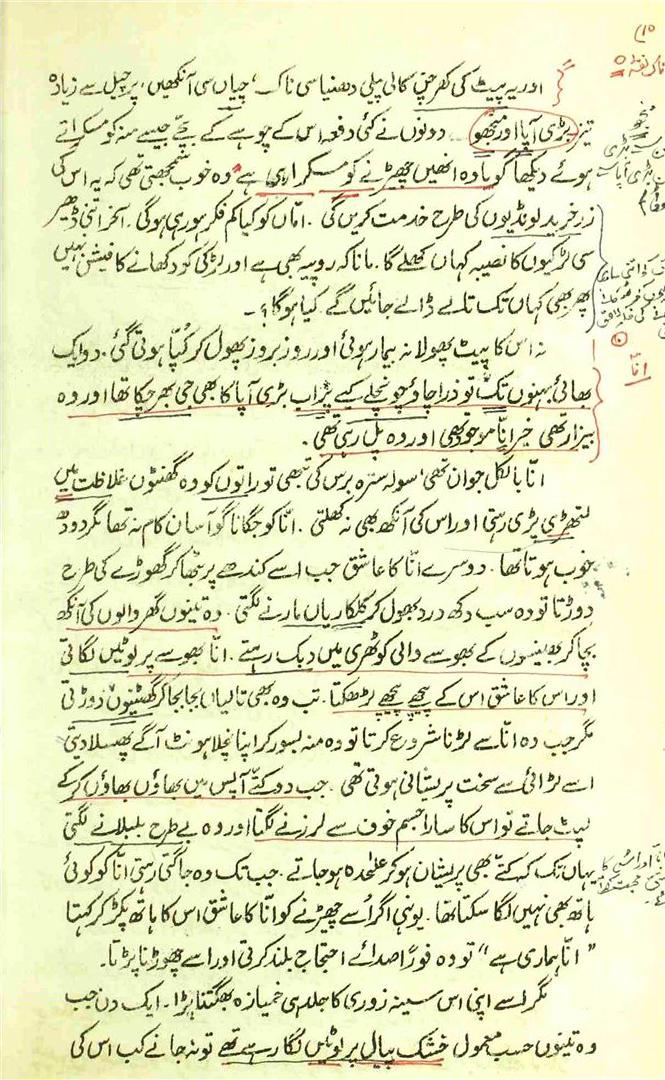 اور یہ پیٹ کی کھرچن کالی پیلی دھنیا سی ناک، چیاں سی آنکھیں، پر چیل سے زیادہ
تیز بڑی آپا اور منجھو۔ دونوں نے کئی دفعہ اس کے چوہے کے بچے جیسے منہ کو مسکراتے
ہوئے دیکھا گویا وہ انھیں چھڑنے کو مسکرا رہی ہے وہ خوب سمجھتی تھی کہ یہ اس کی
زر خرید لونڈیوں کی طرح خدمت کریں گی۔ اماں کو کیا کم فکر ہو رہی ہوگی۔ آخر اتنی ڈھیر
سی لڑکیوں کا نصیبہ کہاں کھلے گا۔ مانا کہ روپیہ بھی ہے اور لڑکی کو دکھانے کا فیشن نہیں
پھر بھی کہاں تک تلے ڈالے جائیں گے۔ کیا ہوگا؟۔
نہ اس کا پیٹ پھولا نہ بیمار ہوئی اور روز بروز پھول کر کُپّا ہوتی گئی۔ دو ایک
بھائی بہنوں تک تو ذرا چاؤ چونچلے کیے پر اب بڑی آپا کا بھی جی بھر چکا تھا اور وہ
بیزار تھی خیر انّا موجود تھی اور وہ پل رہی تھی۔
انّا بالکل جوان تھی، سولہ سترہ برس کی تبھی تو راتوں کو وہ گھنٹوں غلاظت میں
لتھڑی پڑی رہتی اور اس کی آنکھ بھی نہ کھلتی۔ انّا کو جگانا گو آسان کام نہ تھا مگر دودھ
خوب ہوتا تھا۔ دوسرے انّا کا عاشق جب اسے کندھے پر بٹھا کر گھوڑے کی طرح
دوڑتا تو وہ سب دکھ درد بھول کر کلکاریاں مارنے لگتی۔ وہ تینوں گھر والوں کی آنکھ
بچا کر بھینسوں کے بھوسے والی کوٹھری میں دبک رہتے۔ انّا بھوسے پر لوٹیں لگاتی
اور اس کا عاشق اس کے پیچھے پیچھے لڑھکتا۔ تب وہ بھی تالیاں بجا بجا کر گھٹنیوں دوڑتی
مگر جب وہ انّا سے لڑنا شروع کرتا تو وہ منہ بسور کر اپنا نچلا ہونٹ آگے پھسلا دیتی
اسے لڑائی سے سخت پریشانی ہوتی تھی۔ جب دو کتّے آپس میں بھاؤں بھاؤں کرکے
لپٹ جاتے تو اس کا سارا جسم خوف سے لرزنے لگتا اور وہ بے طرح بلبلانے لگتی
یہاں تک کہ کتے بھی پریشان ہو کر علٰحدہ ہو جاتے۔ جب تک وہ جاگتی رہتی انّا کو کوئی
ہاتھ بھی نہیں لگا سکتا تھا۔ یونہی اگر اُسے چھڑنے کو انّا کا عاشق اس کا ہاتھ پکڑ کر کہتا
"انّا ہماری ہے" تو وہ فوراً صدائے احتجاج بلند کرتی اور اسے چھوڑنا پڑتا۔
مگر اسے اپنی اس سینہ زوری کا جلد ہی خمیازہ بھگتنا پڑا۔ ایک دن جب
وہ تینوں حسب معمول خشک پیال پر لوٹیں لگا رہے تھے تو نہ جانے کب اس کی
انّا